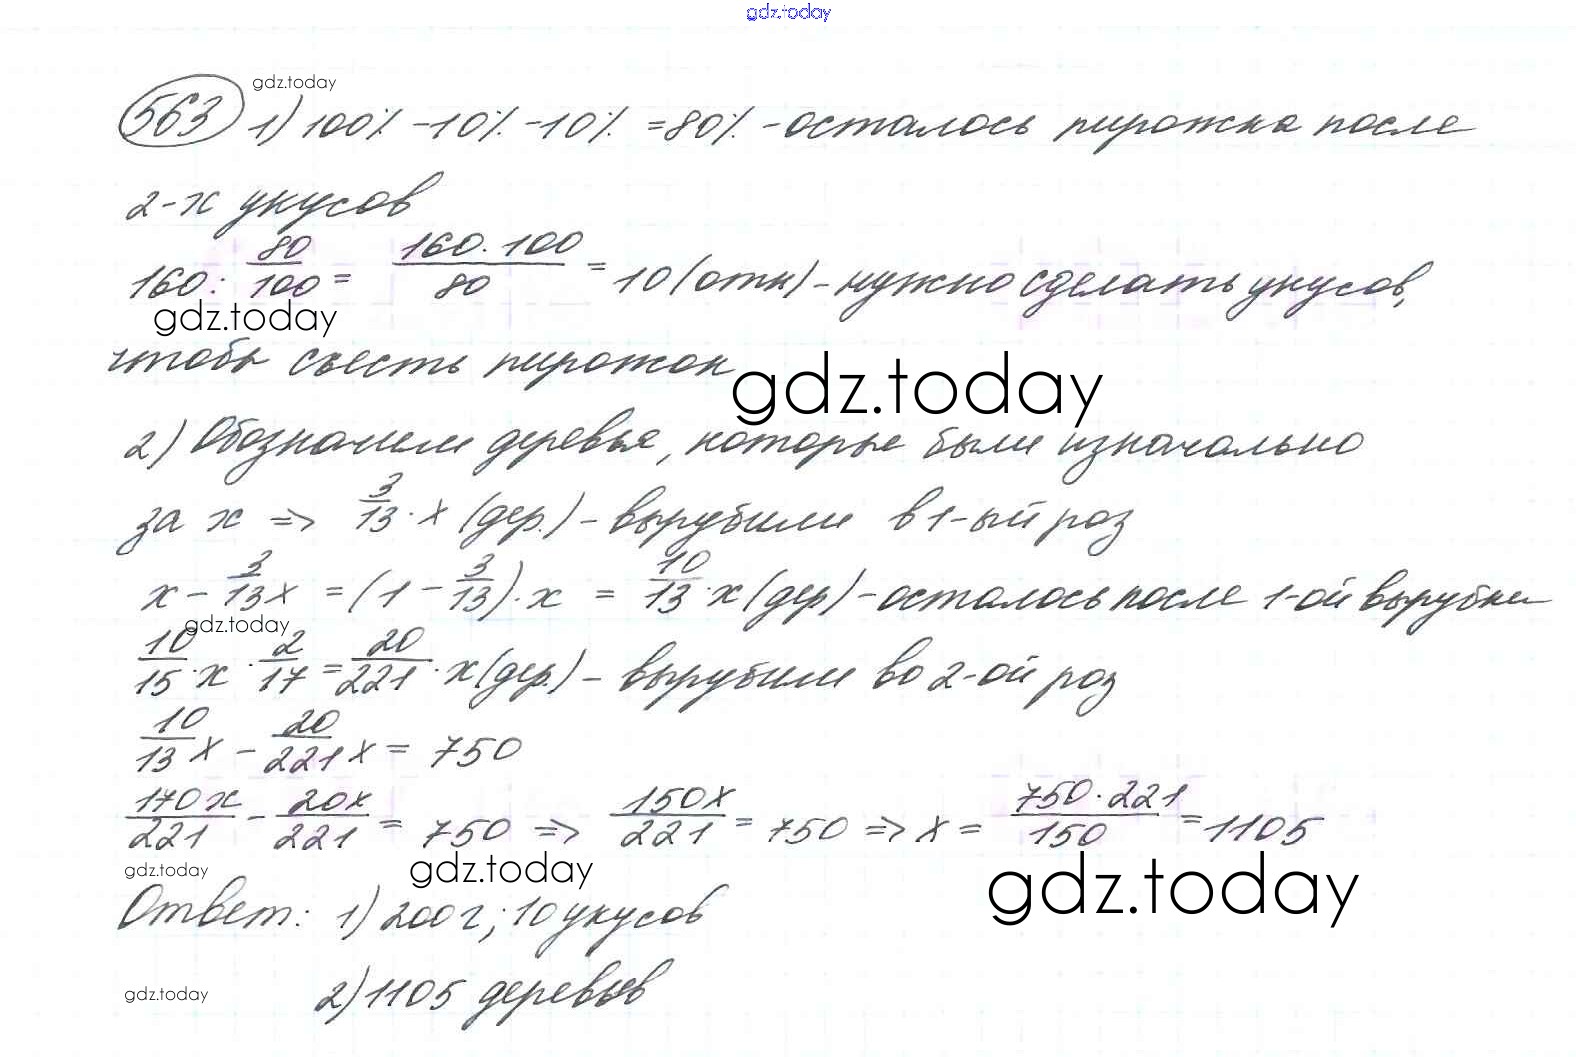 gdz.today
563 gdz.today 1) 100% - 10% - 10% = 80% - осталось пирожка после
2-х укусов
160 : 80/100 = 160·100/80 = 10 (отк) - нужно сделать укусов,
gdz.today
чтобы съесть пирожок gdz.today
2) Обозначим деревья, которые были изначально
за x => 3/13 · x (дер.) - вырубили в 1-ый роз
x - 3/13 x = (1 - 3/13) · x = 10/13 · x (дер) - осталось после 1-ой вырубки
gdz.today
10/15 · x · 2/17 = 20/221 · x (дер.) - вырубили во 2-ой роз
10/13 x - 20/221 x = 750
170x/221 - 20x/221 = 750 => 150x/221 = 750 => x = 750·221/150 = 1105
gdz.today gdz.today gdz.today
Ответ: 1) 200 г; 10 укусов
gdz.today 2) 1105 деревьев